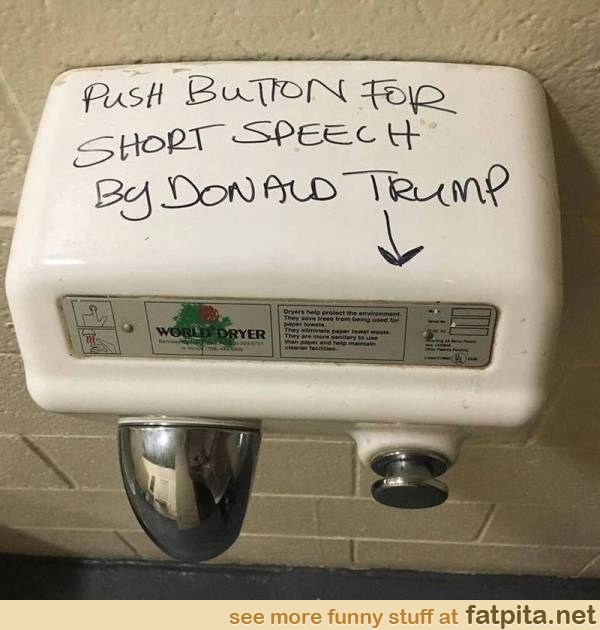 PUSH BUTTON FOR
SHORT SPEECH
BY DONALD TRUMP
WORLD DRYER
Dryers help protect the environment.
They save trees from being used for
paper towels.
They eliminate paper towel waste.
They are more sanitary to use
than paper and help maintain
cleaner facilities.
see more funny stuff at fatpita.net